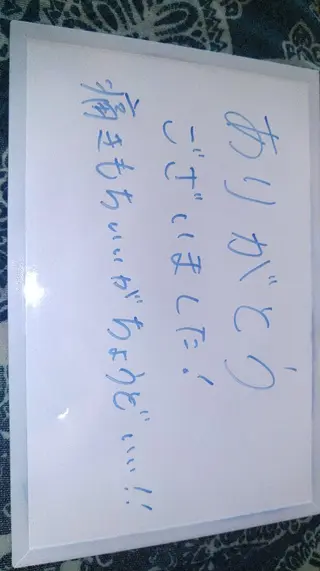 ありがとう
ございました!
痛きもちいいがちょうどいい!!